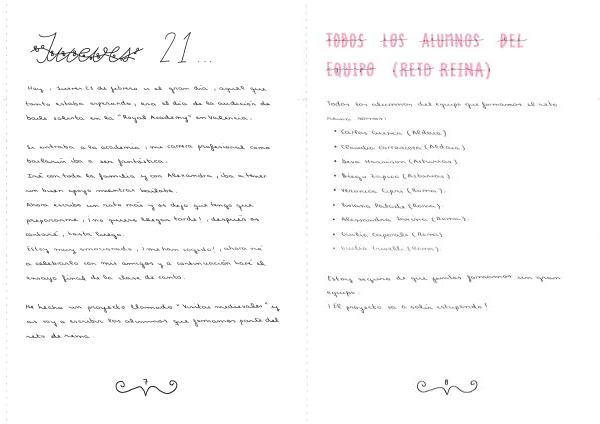 Jueves 21...
Hoy, Jueves 21 de febrero es el gran día, aquel que
tanto estaba esperando, era el día de la audición de
baile solista en la "Royal Academy" en Valencia.
Si entraba a la academia, mi carrera profesional como
bailarín iba a ser fantástica.
Iré con toda la familia y con Alexandra, iba a tener
un buen apoyo mientras bailaba.
Ahora escribo un rato más y os dejo que tengo que
prepararme, ¡no quiero llegar tarde!, después os
contaré, hasta luego.
Estoy muy emocionado, ¡me han cogido!, ahora iré
a celebrarlo con mis amigos y a continuación haré el
ensayo final de la clase de canto.
He hecho un proyecto llamado "Visitas medievales" y
os voy a escribir los alumnos que formamos parte del
reto de reina.
7
TODOS LOS ALUMNOS DEL
EQUIPO (RETO REINA)
Todos los alumnos del equipo que formamos el reto
reina somos:
• Carlos Cuenca (Aldaia)
• Claudia Carrascosa (Aldaia)
• Harrison (Asturias).
• Diego Zapico (Asturias).
• Veronica (Roma).
• (Roma).
• Alessandra (Roma).
• Giulia Caporale (Roma).
• Giulia (Roma).
Estoy seguro de que juntos formamos un gran
equipo.
¡El proyecto va a salir estupendo!
8